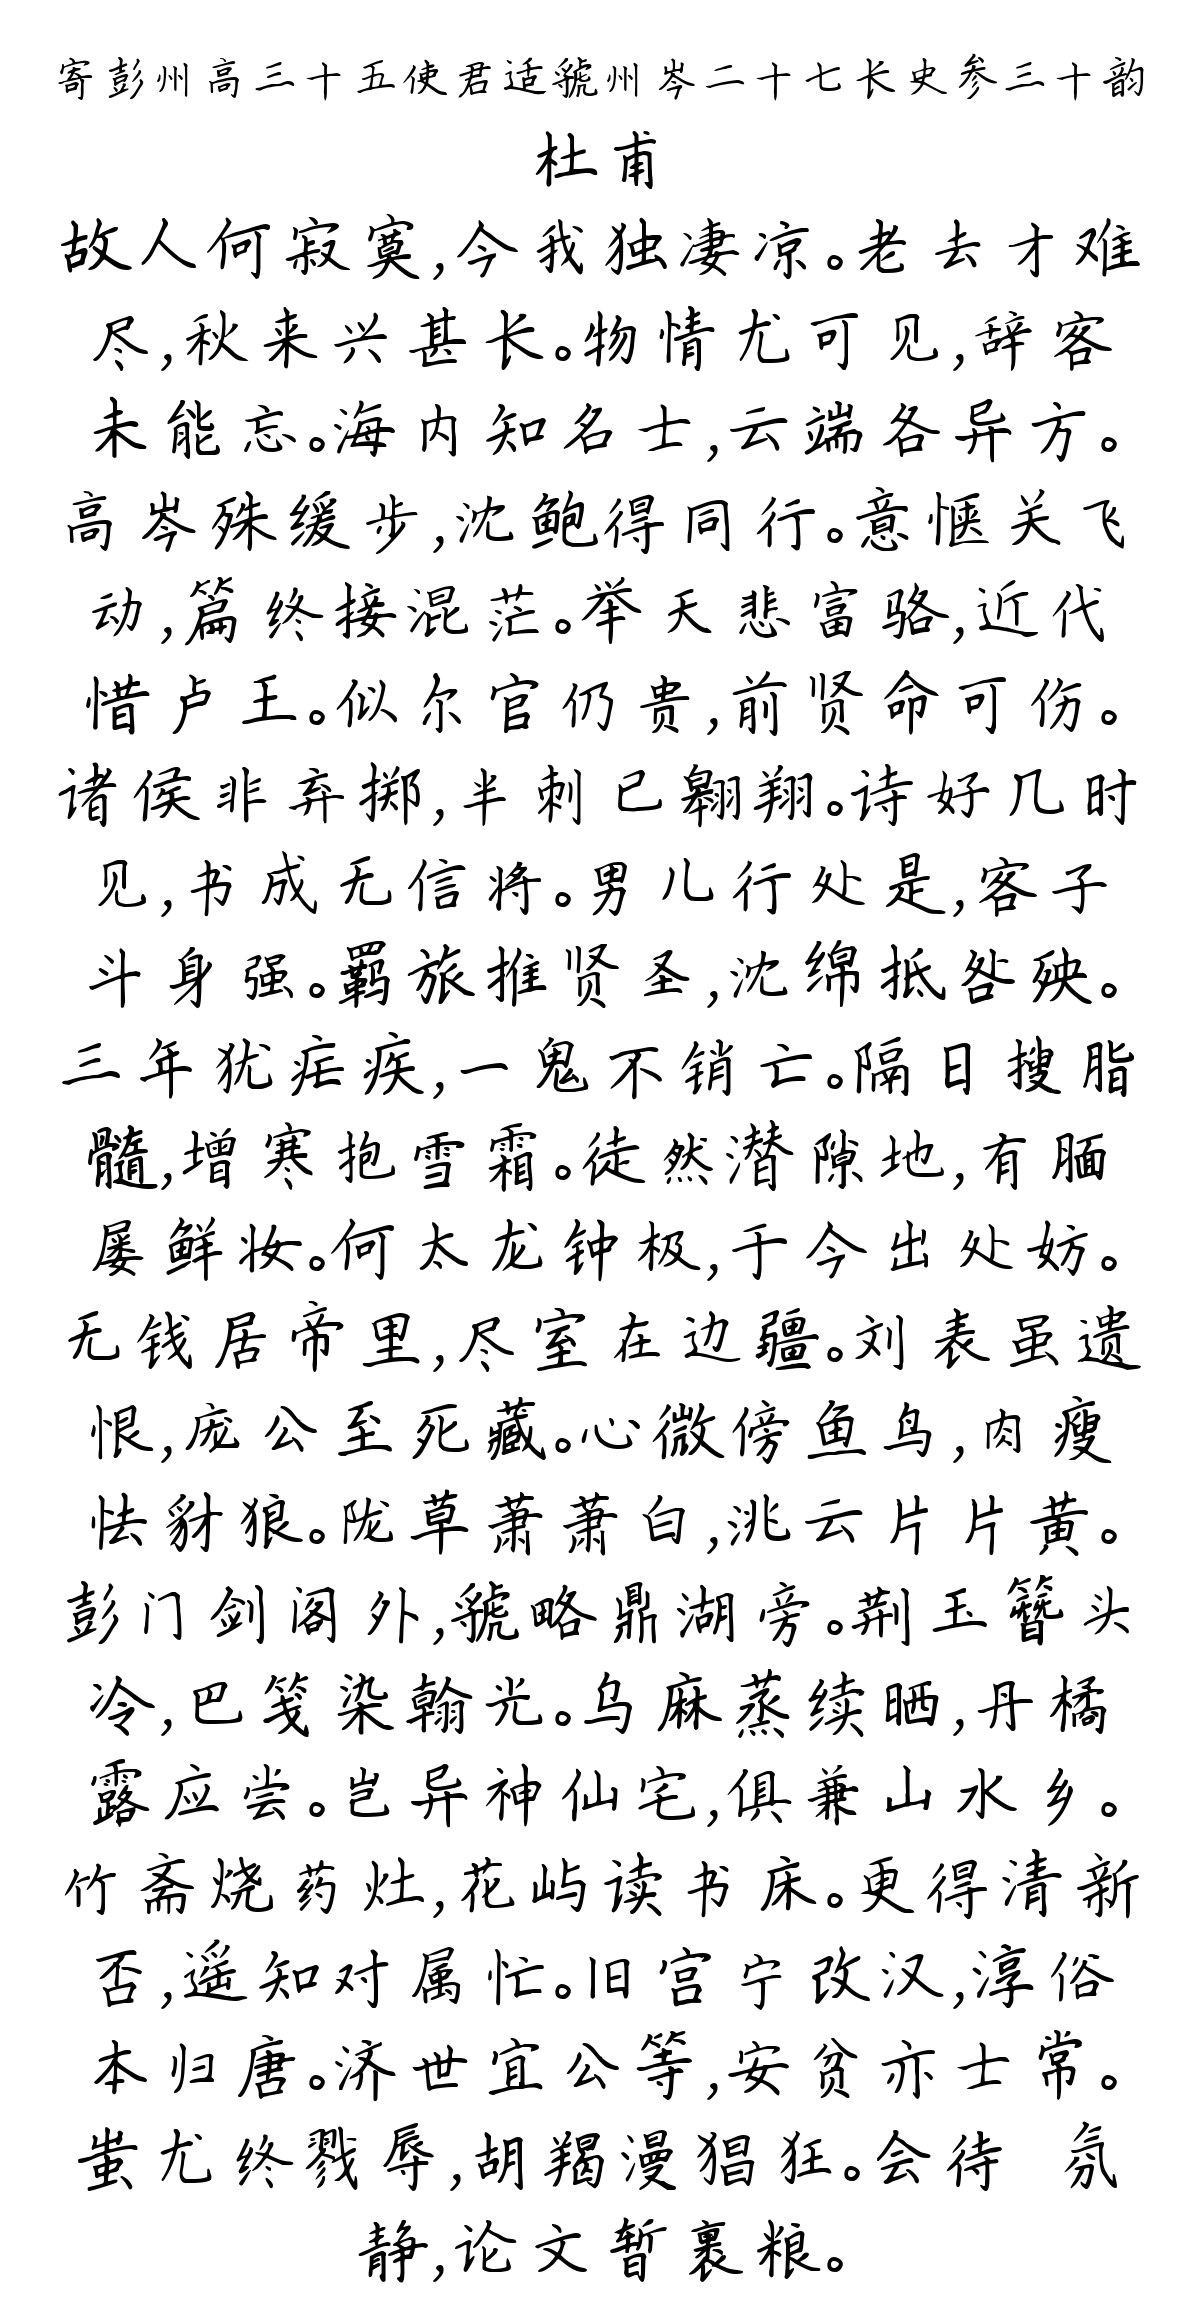 寄彭州高三十五使君适虢州岑二十七长史参三十韵
杜甫
故人何寂寞,今我独凄凉。老去才难
尽,秋来兴甚长。物情尤可见,辞客
未能忘。海内知名士,云端各异方。
高岑殊缓步,沈鲍得同行。意惬关飞
动,篇终接混茫。举天悲富骆,近代
惜卢王。似尔官仍贵,前贤命可伤。
诸侯非弃掷,半刺已翱翔。诗好几时
见,书成无信将。男儿行处是,客子
斗身强。羁旅推贤圣,沈绵抵咎殃。
三年犹疟疾,一鬼不销亡。隔日搜脂
髓,增寒抱雪霜。徒然潜隙地,有腼
屡鲜妆。何太龙钟极,于今出处妨。
无钱居帝里,尽室在边疆。刘表虽遗
恨,庞公至死藏。心微傍鱼鸟,肉瘦
怯豺狼。陇草萧萧白,洮云片片黄。
彭门剑阁外,虢略鼎湖旁。荆玉簪头
冷,巴笺染翰光。乌麻蒸续晒,丹橘
露应尝。岂异神仙宅,俱兼山水乡。
竹斋烧药灶,花屿读书床。更得清新
否,遥知对属忙。旧宫宁改汉,淳俗
本归唐。济世宜公等,安贫亦士常。
蚩尤终戮辱,胡羯漫猖狂。会待 氛
静,论文暂裹粮。